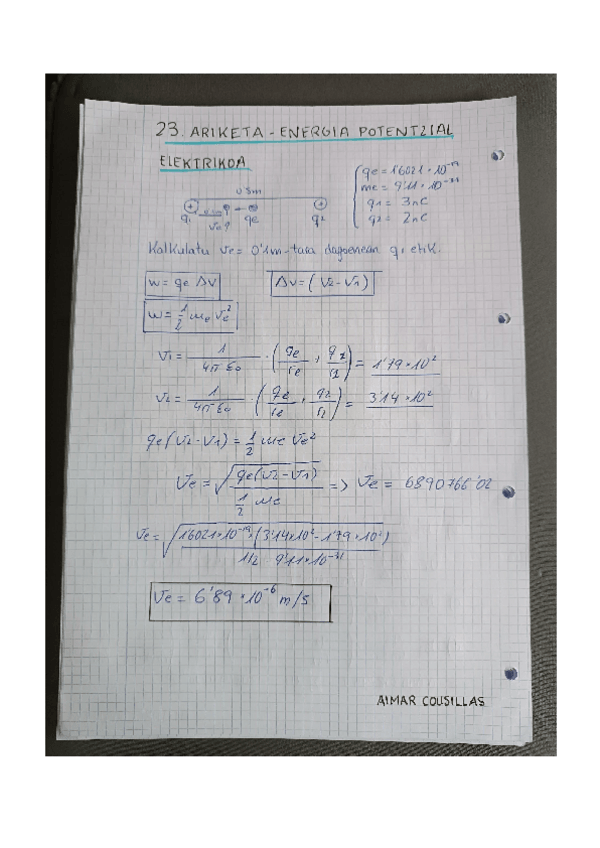 23. ARIKETA - ENERGIA POTENTZIAL
ELEKTRIKOA
0'5m
qe = 1'6021 × 10⁻¹⁹
me = 9'11 × 10⁻³¹
q1 = 3nC
q2 = 2nC
q1 qe q2
ve?
Kalkulatu ve = 0'1m-tara dagoenean q1 etik.
W = qe ΔV ΔV = (V2 - V1)
W = 1/2 me ve²
V1 = 1/4πε0 · (qe/re + q2/r2) = 1'79 × 10²
V2 = 1/4πε0 · (qe/re + q2/r2) = 3'14 × 10²
qe (V2 - V1) = 1/2 me ve²
ve = √(qe (V2 - V1) / 1/2 me) => ve = 6890766'02
ve = √(1'6021×10⁻¹⁹ · (3'14×10² - 1'79×10²) / 1/2 9'11×10⁻³¹)
ve = 6'89 × 10⁻⁶ m/s
AIMAR COUSILLAS